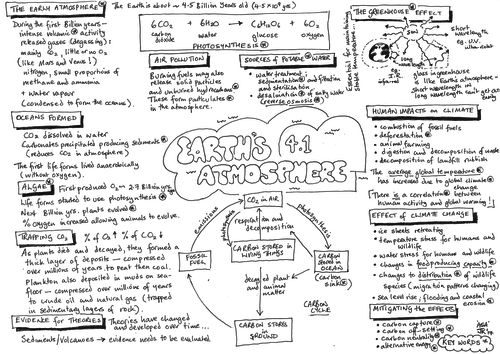 THE EARTH ATMOSPHERE
The Earth is about ~ 4.5 Billion Years old (4.5 x 10⁹ yrs)
During the first Billion years-
intense volcanic activity
released gases (degassing):
mainly CO₂, little or no O₂
(like Mars and Venus!)
nitrogen, small proportions of
methane and ammonia
+ water vapour
(condensed to form the oceans).
6CO₂ + 6H₂O → C₆H₁₂O₆ + 6O₂
carbon dioxide water glucose oxygen
PHOTOSYNTHESIS
AIR POLLUTION
Burning fuels may also
release solid particles
and unburned hydrocarbons
These form particulates
in the atmosphere.
SOURCES OF POTABLE WATER
water treatment:
sedimentation and filtration
and sterilisation
desalination of salty water
(reverse osmosis)
THE GREENHOUSE EFFECT
stable temperature...
Sun
short
wavelength
eg. UV,
I.R.
infrared
glass in greenhouse
is like Earth atmosphere -
Short wavelength in
long wavelength can't get out
OCEANS FORMED
CO₂ dissolved in water
Carbonates precipitated producing sediments
(reduces CO₂ in atmosphere)
The first life forms lived anaerobically
(without oxygen).
ALGAE
First produced O₂ ~ 2.7 Billion yrs.
Life forms started to use photosynthesis
Next Billion yrs. plants evolved
% oxygen increased allowing animals to evolve.
TRAPPING CO₂
% of O₂ ↑ % of CO₂ ↓
As plants died and decayed, they formed a
thick layer of deposits - compressed
over millions of years to peat then coal.
Plankton also deposited in muds on sea-
floor - compressed over millions of years
to crude oil and natural gas (trapped
in sedimentary layers of rock).
EVIDENCE FOR THEORIES
Theories have changed
and developed over time...
Sediments/Volcanoes → evidence needs to be evaluated
4.1
EARTH'S
ATMOSPHERE
CO₂ IN AIR
Emissions
photosynthesis
respiration and
decomposition
photosynthesis
FOSSIL
FUEL
CARBON STORED IN
LIVING THINGS
CARBON
STORED IN
OCEANS
(carbon
sink)
decay of plant
and animal
matter
CARBON
CYCLE
CARBON STORED
IN
GROUND
HUMAN IMPACTS ON CLIMATE
combustion of fossil fuels
deforestation
animal farming
digestion and decomposition of waste
decomposition of landfill rubbish
The average global temperature
has increased due to global climate
change
[There is a correlation between
human activity and global warming!]
EFFECT OF CLIMATE CHANGE
ice sheets retreating
temperature stress for humans and
wildlife
water stress for humans and wildlife
changes in food producing capacity
changes to distribution of wildlife
Species (migration patterns changing)
sea level rise; flooding and coastal
erosion
MITIGATING THE EFFECTS
carbon capture
carbon off-setting
carbon neutrality
alternative energy
KEY WORDS